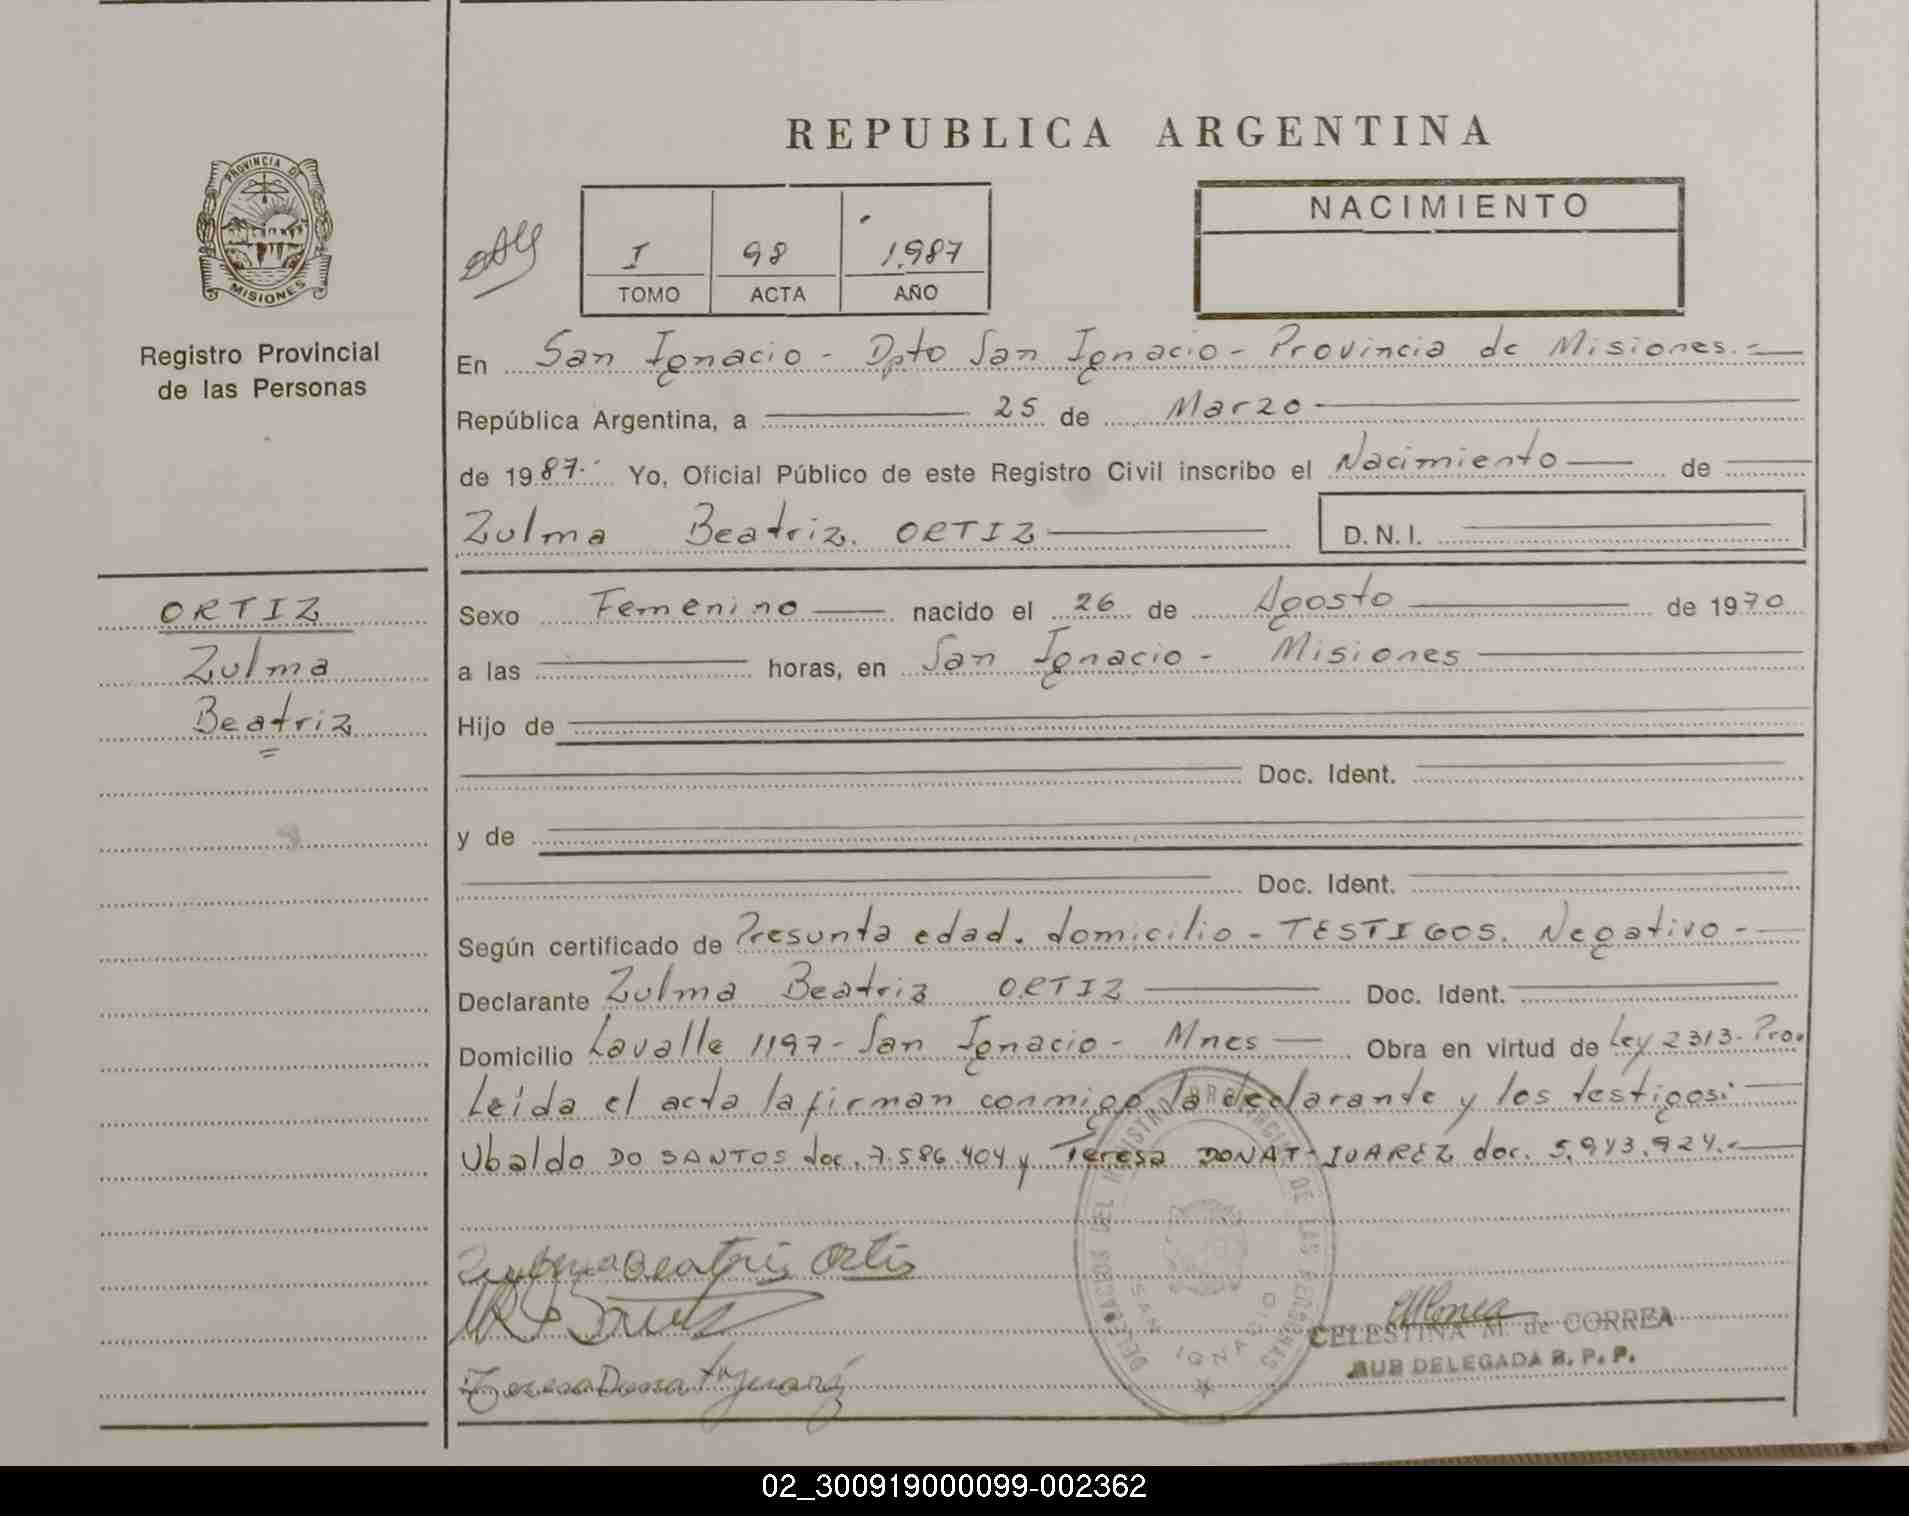 REPUBLICA ARGENTINA
PROVINCIA DE
MISIONES
Registro Provincial
de las Personas
I 98 1.987
TOMO ACTA AÑO
NACIMIENTO
En San Ignacio - Dpto San Ignacio - Provincia de Misiones.-
República Argentina, a 25 de Marzo
de 1987. Yo, Oficial Público de este Registro Civil inscribo el Nacimiento de
Zulma Beatriz. ORTIZ D.N.I.
ORTIZ
Zulma
Beatriz
Sexo Femenino nacido el 26 de Agosto de 1970
a las horas, en San Ignacio - Misiones
Hijo de
Doc. Ident.
y de
Doc. Ident.
Según certificado de Presunta edad. domicilio - TESTIGOS. Negativo -
Declarante Zulma Beatriz ORTIZ Doc. Ident.
Domicilio Lavalle 1197 - San Ignacio - Mnes Obra en virtud de Ley 2313 - Prov.
Leída el acta la firman conmigo la declarante y los testigos:
Ubaldo DO SANTOS doc. 7.586.404 y Teresa DONAT-JUAREZ doc. 5.943.924.-
Zulma Beatris Ortis
Teresa Donat Juaréz
DELEGACIOS DEL REGISTRO PROVINCIAL DE LAS PERSONAS
SAN IGNACIO
CELESTINA M. de CORREA
SUB DELEGADA R. P. P.
02_300919000099-002362